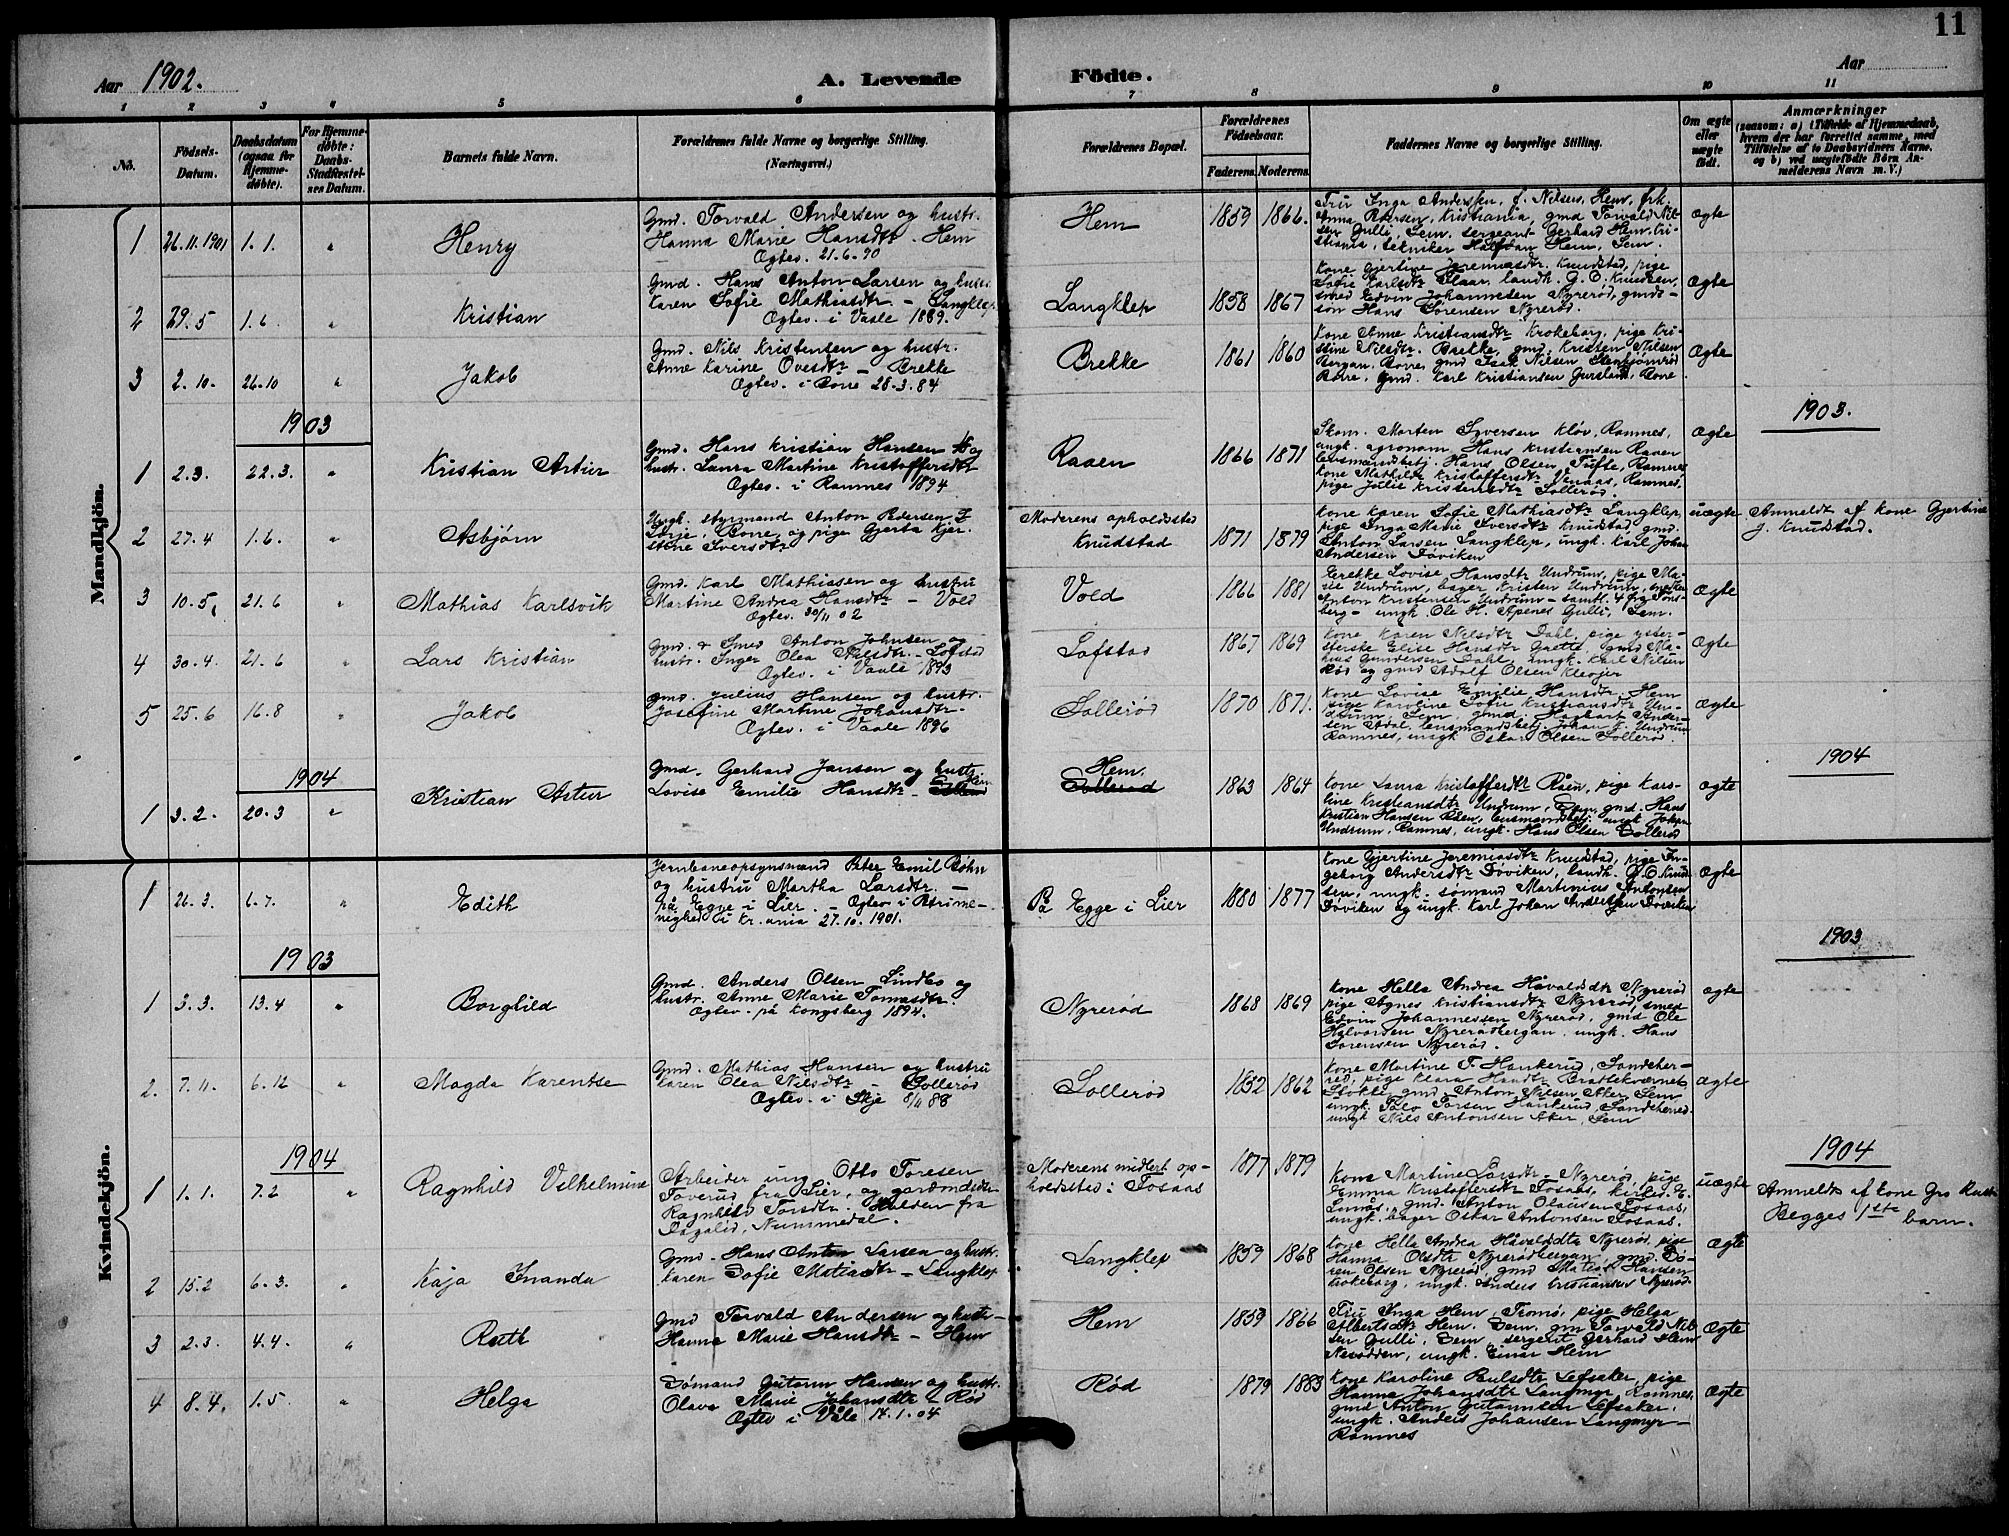 11
Aar 1902.
A. Levende Födte.
Aar
1 2 3 4 5 6 7 8 9 10 11
No.
Födsels-Datum.
Daabsdatum (ogsaa for Hjemmedöbte).
For Hjemmedöbte: Daabs-Stadfæstelses Datum.
Barnets fulde Navn.
Forældrenes fulde Navne og borgerlige Stilling. (Næringsvei.)
Forældrenes Bopæl.
Forældrenes Födselsaar.
Faderens. Moderens.
Faddernes Navne og borgerlige Stilling.
Om ægte eller uægte födt.
Anmærkninger
(saasom: a) i Tilfælde af Hjemmedaab,
hvem der har forrettet samme, med
Tilföielse af to Daabsvidners Navne.
og b) ved uægtefödte Börn An-
melderens Navn m. V.)
Mandkjön.
1 26.11.1901 1.1. "
Henry
Gmd. Torvald Andersen og hustr.
Hanna Marie Hansdtr. Hem
Ægtev. 21.6.90
Hem 1859 1866.
Fru Inga Andersen, f. Nilsen, Hem, frk.
Anna Petersen, Kristiania, gmd Torvald Nil-
sen Gulli, Sem, sergeant Gerhard Hem, Kri-
stiania, tekniker Halfdan Hem, Sem.
Ægte
2 29.5 1.6. "
Kristian
Gmd. Hans Anton Larsen og hustr.
Karen Sofie Mathiasdtr - Langklep.
Ægtev. i Vaale 1889.
Langklep 1858 1867
Kone Gjertine Jeremiasdtr. Knudstad, pige
Sofie Karlsdtr, landh. G. O. Knudsen,
smed Edvin Johannesen Nyrerød, gmds-
søn Hans Sørensen Nyrerød.
Ægte
3 2.10. 26.10 "
Jakob
Gmd. Nils Kristensen og hustr.
Anne Karine Ovesdtr - Brekke
Ægtev. i Borre 28.3.84
Brekke 1861 1860
Kone Anne Kristiansdtr Krokeborg, pige Kri-
stine Nilsdtr. Brekke, gmd. Kristen Nilsen
Bergan, Borre, gmd Isak Nilsen
Borre, gmd. Karl Kristiansen Borre
Ægte
1903
1903.
1 2.3. 22.3. "
Kristian Artur
Gmd. Hans Kristian Hansen og
hustr. Laura Martine Kristoffersdtr
Ægtev. i Ramnes 1894
Raaen 1866 1871
Skom. Morten Syversen Kløv, Ramnes,
ungk. agronom Hans Kristiansen Raaen
lensmandsbetj. Hans Olsen Tufte, Ramnes
Kone Mathilde Kristoffersdtr Venaas, Ramnes,
pige Julie Kristensdtr Sollerød.
Ægte
2 27.4 1.6. "
Asbjørn
Ungk. styrmand Anton Pedersen
Borre, og pige Gjerta Kjer-
stine Iversdtr
Moderens opholdssted
Knudstad 1871 1879
Kone Karen Sofie Mathiasdtr Langklep,
pige Inga Marie Iversdtr Knudstad, gmd.
Anton Larsen Langklep, ungk. Karl Johan
Andersen Døviken
uægte
Anmeldt af kone Gjertine
J. Knudstad.
3 10.5. 21.6 "
Mathias Karlsvik
Gmd. Karl Mathiassen og hustru
Martine Andrea Hansdtr - Vold
Ægtev. 30/11 02
Vold 1866 1881
Lovise Hansdtr Undrum, pige Ma-
rie Undrum, bager Kristen Undrum,
Anton Kristensen Undrum - samtl. Tøns-
berg - ungk Ole H. Apenes Gulli, Sem.
Ægte
4 30.4. 21.6 "
Lars Kristian
Gmd. & Smed Anton Johnsen og
hustr. Inger Olea Nilsdtr. - Lofstad
Ægtev. i Vaale 1893
Lofstad 1867 1869
Kone Karen Nilsdtr Dahl, pige
Elise Hansdtr Grette, gmd Ma-
thius Gundersen Dahl, ungk. Karl Nilsen
Rød og gmd Adolf Olsen Kleojer
Ægte
5 25.6 16.8 "
Jakob
Gmd. Julius Hansen og hustr.
Josefine Martine Johansdtr.
Ægtev. i Vaale 1896
Sollerød 1870 1871.
Kone Lovise Emilie Hansdtr. Hem
pige Karoline Sofie Kristiansdtr Un-
drum, Sem, gmd. Hagbart Ander-
sen Adal, lensmandsbetj. Johan F. Undrum
Ramnes, ungk Oskar Olsen Sollerød.
Ægte
1904
1904
1 3.2. 20.3 "
Kristian Artur
Gmd. Gerhard Jansen og hustr.
Lovise Emilie Hansdtr - Hem
Hem.
Sollerød 1863 1864
Kone Laura Kristoffersdtr Råen, pige Karo-
line Kristiansdtr Undrum, Sem, gmd. Hans
Kristian Hansen Råen, lensmandsbetj. ungk Johan
Undrum, Ramnes, ungk. Hans Olsen Sollerød
Ægte
Kvindekjön.
1 26.3. 6.7. "
Edith
Jernbaneopsynsmand Peter Emil Bøhn
og hustru Martha Larsdtr. -
på Egge i Lier. - Ægtev. i Petrime-
nighed i Kr.ania 27.10.1901.
På Egge i Lier 1880 1877
Kone Gjertine Jeremiasdtr Knudstad, pige In-
geborg Andersdtr Døviken, landh. G. O. Knud-
sen, ungk. sømand Martinius Antonsen
Døviken og ungk. Karl Johan Andersen Døviken
Ægte
1903
1903
1 3.3. 13.4 "
Borghild
Gmd. Anders Olsen Lindbo og
hustr. Anne Marie Tomasdtr.
Ægtev. på Kongsberg 1894.
Nyrerød 1868 1869
Kone Helle Andrea Håvaldsdtr Nyrerød
pige Agnes Kristiansdtr Nyrerød, smed
Edvin Johannessen Nyrerød, gmd Ole
Halvorsen Nyrerødbergan, ungk. Hans
Sørensen Nyrerød.
Ægte
2. 7.11. 6.12 "
Magda Karentse
Gmd. Mathias Hansen og hustru
Karen Olea Nilsdtr - Sollerød
Ægtev. i Skje 8/11 88
Sollerød 1852 1862
Kone Martine T. Hankerud, Sandeher-
red, pige Klara Hansdtr Bratlekværnet
Stokke, gmd. Anton Nilsen Aker Sem
ungk. Hankerud, Sandeherred
ungk Nils Antonsen Aker, Sem
Ægte
1904
1904
1 1.1. 7.2 "
Ragnhild Vilhelmine
Arbeider ung Otto Toresen
Toverud fra Lier, og gårdmdsdtr
Ragnhild Torsdtr. Halden fra
Dagalid, Nummedal.
Moderens midlert. op-
holdssted: Fosaas 1877 1879
Kone Martine Larsdtr Nyrerød, pige
Emma Kristoffersdtr Fosaas, kirkes. E.
Lunås, gmd. Anton Olausen Fosaas,
ungk. bager Oskar Antonsen Fosaas.
uægte
Anmeldt af kone Gro
Begges 1ste barn.
2 15.2 6.3. "
Kaja Inanda
Gmd. Hans Anton Larsen og hustr.
Karen Sofie Matiasdtr - Langklep
Langklep 1859 1868
Kone Helle Andrea Håvaldsdtr Nyrerød, pige
Hanna Olsdtr Nyrerødbergan, gmd. Sø-
ren Olsen Nyrerød, gmd Matias Hansen
Krokeborg, ungk. Anders Kristiansen Nyrerød
Ægte
3 2.3. 4.4. "
Ruth
Gmd Torvald Andersen og hustr -
Hanna Marie Hansdtr - Hem
Hem 1859 1866
Fru Inga Hem, Tromø, pige Helga
Albertsdtr Hem, Sem, gm Torvald Nil-
sen Gulli, Sem, sergent Gerhard Hem
Nesodden, ungk. Einar Hem
Ægte
4 8.4. 1.5. "
Helga
Sømand Gutorm Hansen og hustr.
Olava Marie Johansdtr - Rød
Ægtev i Våle 14.1.04
Rød 1879 1883
Kone Karoline Pulsdtr Lefsaker, pige
Hanna Johansdtr Langmyr, Ramnes,
gmd Anton Gutormsen Lefsaker,
ungk. Anders Johansen Langmyr -
Ramnes
Ægte